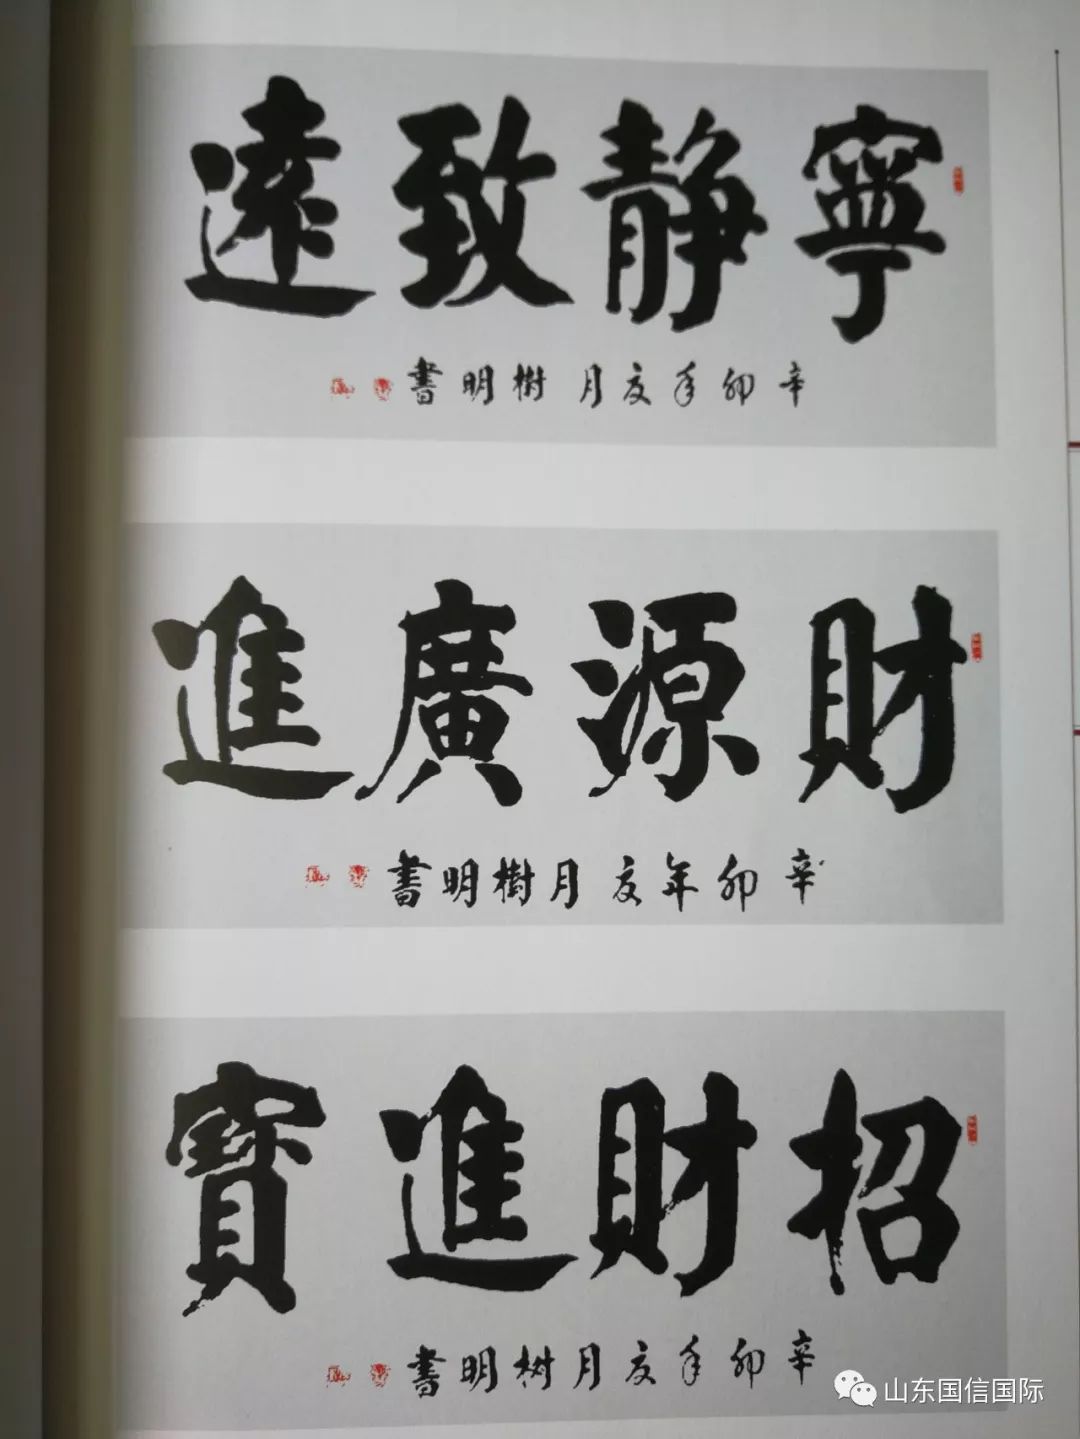 寧静致遠
辛卯年夏月樹明書
財源廣進
辛卯年夏月樹明書
招財進寶
辛卯年夏月树明書
山东国信国际